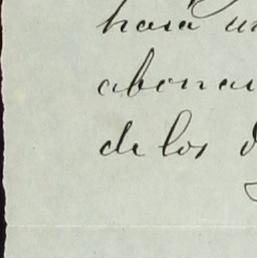 hará un
abonar
de los